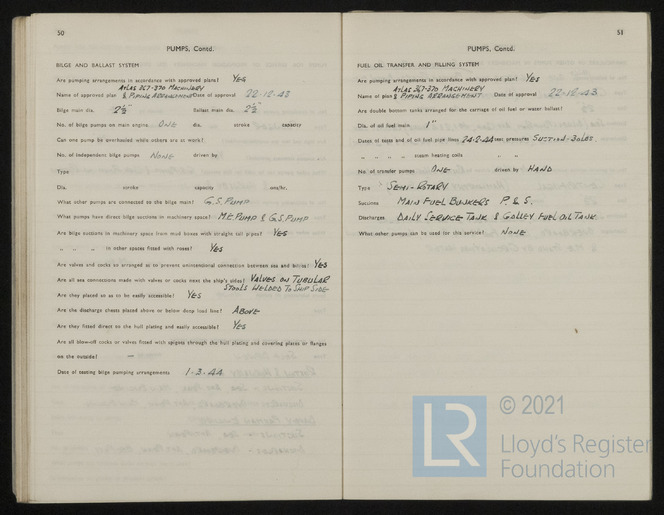 50
PUMPS, Contd.
BILGE AND BALLAST SYSTEM
Are pumping arrangements in accordance with approved plans? YES
ATLAS 367-370 MACHINERY
Name of approved plan & PIPING ARRANGEMENT Date of approval 22-12-43
Bilge main dia. 2½" Ballast main dia. 2½"
No. of bilge pumps on main engine ONE dia. stroke capacity
Can one pump be overhauled while others are at work?
No. of independent bilge pumps NONE driven by
Type
Dia. stroke capacity
What other pumps are connected to the bilge main? G.S. PUMP
What pumps have direct bilge suctions in machinery space? M.E. PUMP & G.S. PUMP
Are bilge suctions in machinery space from mud boxes with straight tail pipes? YES
" " " in other spaces fitted with roses? YES
Are valves and cocks so arranged as to prevent unintentional connection between sea and bilges? YES
Are all sea connections made with valves or cocks next the ship's sides? VALVES ON TUBULAR
STOOLS WELDED TO SHIP SIDE
Are they placed so as to be easily accessible? YES
Are the discharge chests placed above or below deep load line? ABOVE
Are they fitted direct to the hull plating and easily accessible? YES
Are all blow-off cocks or valves fitted with spigots through the hull plating and covering plates or flanges
on the outside? —
Date of testing bilge pumping arrangements 1-3-44
51
PUMPS, Contd.
FUEL OIL TRANSFER AND FILLING SYSTEM
Are pumping arrangements in accordance with approved plan? YES
ATLAS 367-370 MACHINERY
Name of plan & PIPING ARRANGEMENT Date of approval 22-12-43
Are double bottom tanks arranged for the carriage of oil fuel or water ballast?
Dia. of oil fuel main 1"
Dates of tests and of oil fuel pipe lines 24-2-44 test pressures SUCTION - 30 LBS.
" " " " steam heating coils " "
No. of transfer pumps ONE driven by HAND
Type SEMI-ROTARY
Suctions MAIN FUEL BUNKERS P. & S.
Discharges DAILY SERVICE TANK & GALLEY FUEL OIL TANK
What other pumps can be used for this service? NONE
LR
© 2021
Lloyd's Register
Foundation